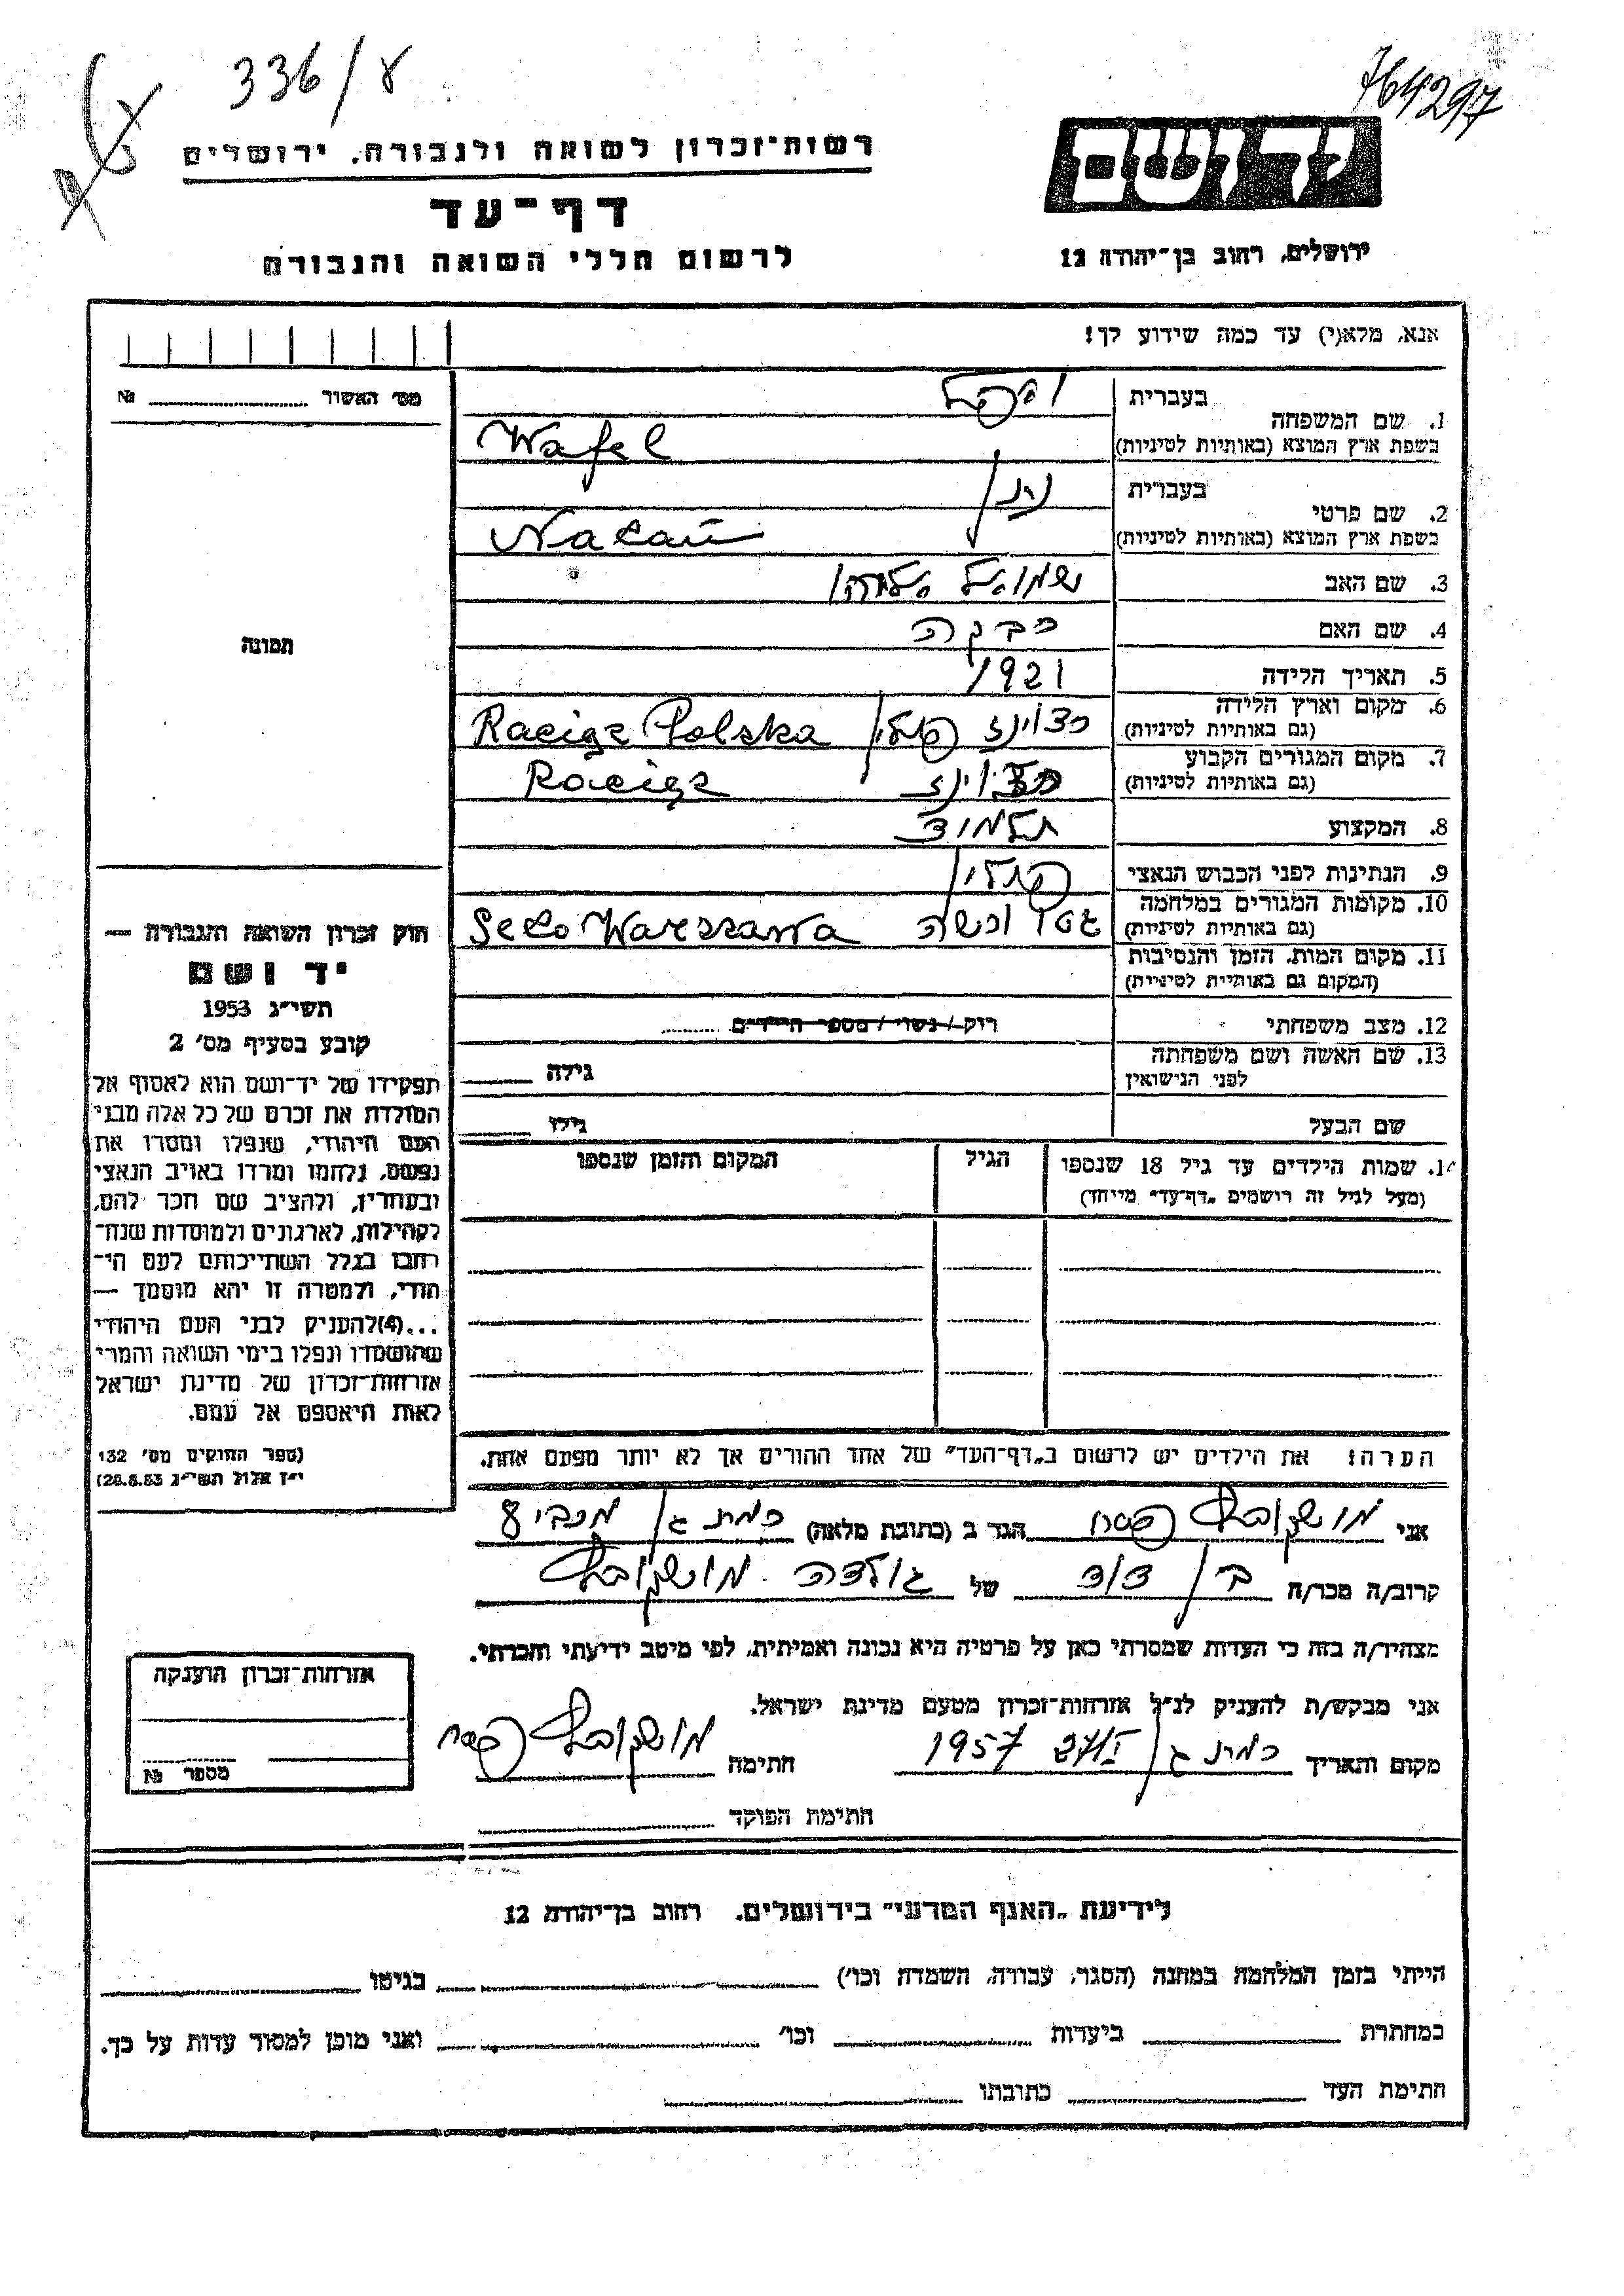 336/४
764297
יד ושם
רשות-זכרון לשואה ולגבורה, ירושלים
דף-עד
לרשום חללי השואה והגבורה
ירושלים, רחוב בן-יהודה 12
אנא, מלא(י) עד כמה שידוע לך!
מס' האשור № 
תמונה
1. שם המשפחה
בעברית ופל
בשפת ארץ המוצא (באותיות לטיניות) Wafel
2. שם פרטי
בעברית נתן
בשפת ארץ המוצא (באותיות לטיניות) Natan
3. שם האב שמואל אליהו
4. שם האם רבקה
5. תאריך הלידה 1921
6. מקום וארץ הלידה
(גם באותיות לטיניות) רצוינז פולין Raciąz Polska
7. מקום המגורים הקבוע
(גם באותיות לטיניות) רצוינז Raciąz
8. המקצוע תלמיד
9. הנתינות לפני הכבוש הנאצי פולין
10. מקומות המגורים במלחמה
(גם באותיות לטיניות) גטו ורשה Geto Warszawa
11. מקום המות, הזמן והנסיבות
(המקום גם באותיות לטיניות)
12. מצב משפחתי רוק/נשוי/מספר הילדים
13. שם האשה ושם משפחתה
לפני הנישואין
גילה
שם הבעל
גילו
14. שמות הילדים עד גיל 18 שנספו
(מעל לגיל זה רושמים „דף-עד" מייחד)
הגיל
המקום והזמן שנספו
הערה: את הילדים יש לרשום ב„דף-העד" של אחד ההורים אך לא יותר מפעם אחת.
חוק זכרון השואה והגבורה —
יד ושם
תשי״ג 1953
קובע בסעיף מס' 2
תפקידו של יד-ושם הוא לאסוף אל
המולדת את זכרם של כל אלה מבני
העם היהודי, שנפלו ומסרו את
נפשם, נלחמו ומרדו באויב הנאצי
ובעוזריו, ולהציב שם וזכר להם,
לקהילות, לארגונים ולמוסדות שנח-
רבו בגלל השתייכותם לעם הי-
הודי, ולמטרה זו יהא מוסמך —
...(4)להעניק לבני העם היהודי
שהושמדו ונפלו בימי השואה והמרי
אזרחות-זכרון של מדינת ישראל
לאות היאספם אל עמם.
(ספר החוקים מס' 132
י״ז אלול תשי״ג 28.8.53)
אני מושקוביץ פסח הגר ב (כתובת מלאה) רמת גן מכבי 8
קרוב/ה מכר/ה בן דוד של גולדה מושקוביץ
מצהיר/ה בזה כי העדות שמסרתי כאן על פרטיה היא נכונה ואמיתית, לפי מיטב ידיעתי והכרתי.
אני מבקש/ת להעניק לנ״ל אזרחות-זכרון מטעם מדינת ישראל.
מקום ותאריך רמת גן 1957 חתימה מושקוביץ פסח
חתימת הפוקד
אזרחות-זכרון הוענקה
מספר №
לידיעת „האגף המדעי" בירושלים. רחוב בן-יהודה 12
הייתי בזמן המלחמה במחנה (הסגר, עבודה, השמדה וכו') בגיטו
במחתרת ביערות וכו' ואני מוכן למסור עדות על כך.
חתימת העד כתובתו